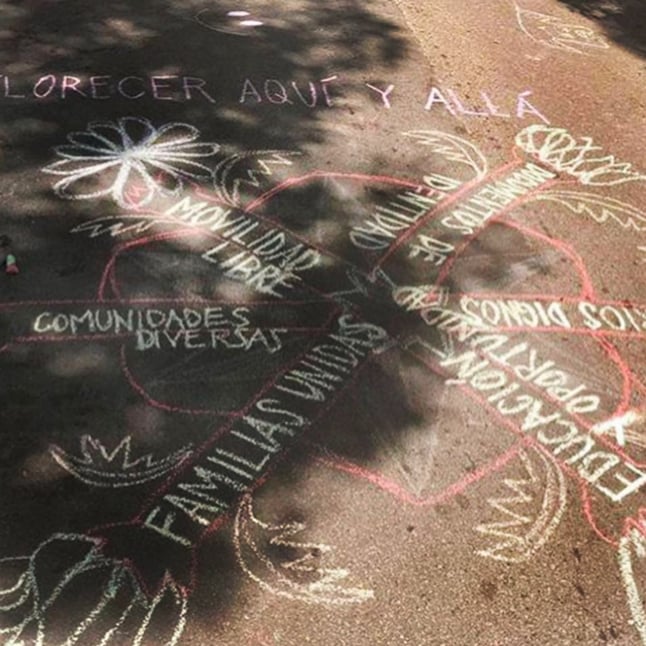 FLORECER AQUÍ Y ALLÁ
MOVILIDAD
LIBRE
DOCUMENTOS DE
IDENTIDAD
COMUNIDADES
DIVERSAS
DIGNOS
FAMILIAS UNIDAS
EDUCACIÓN
Y OPORTUNIDAD